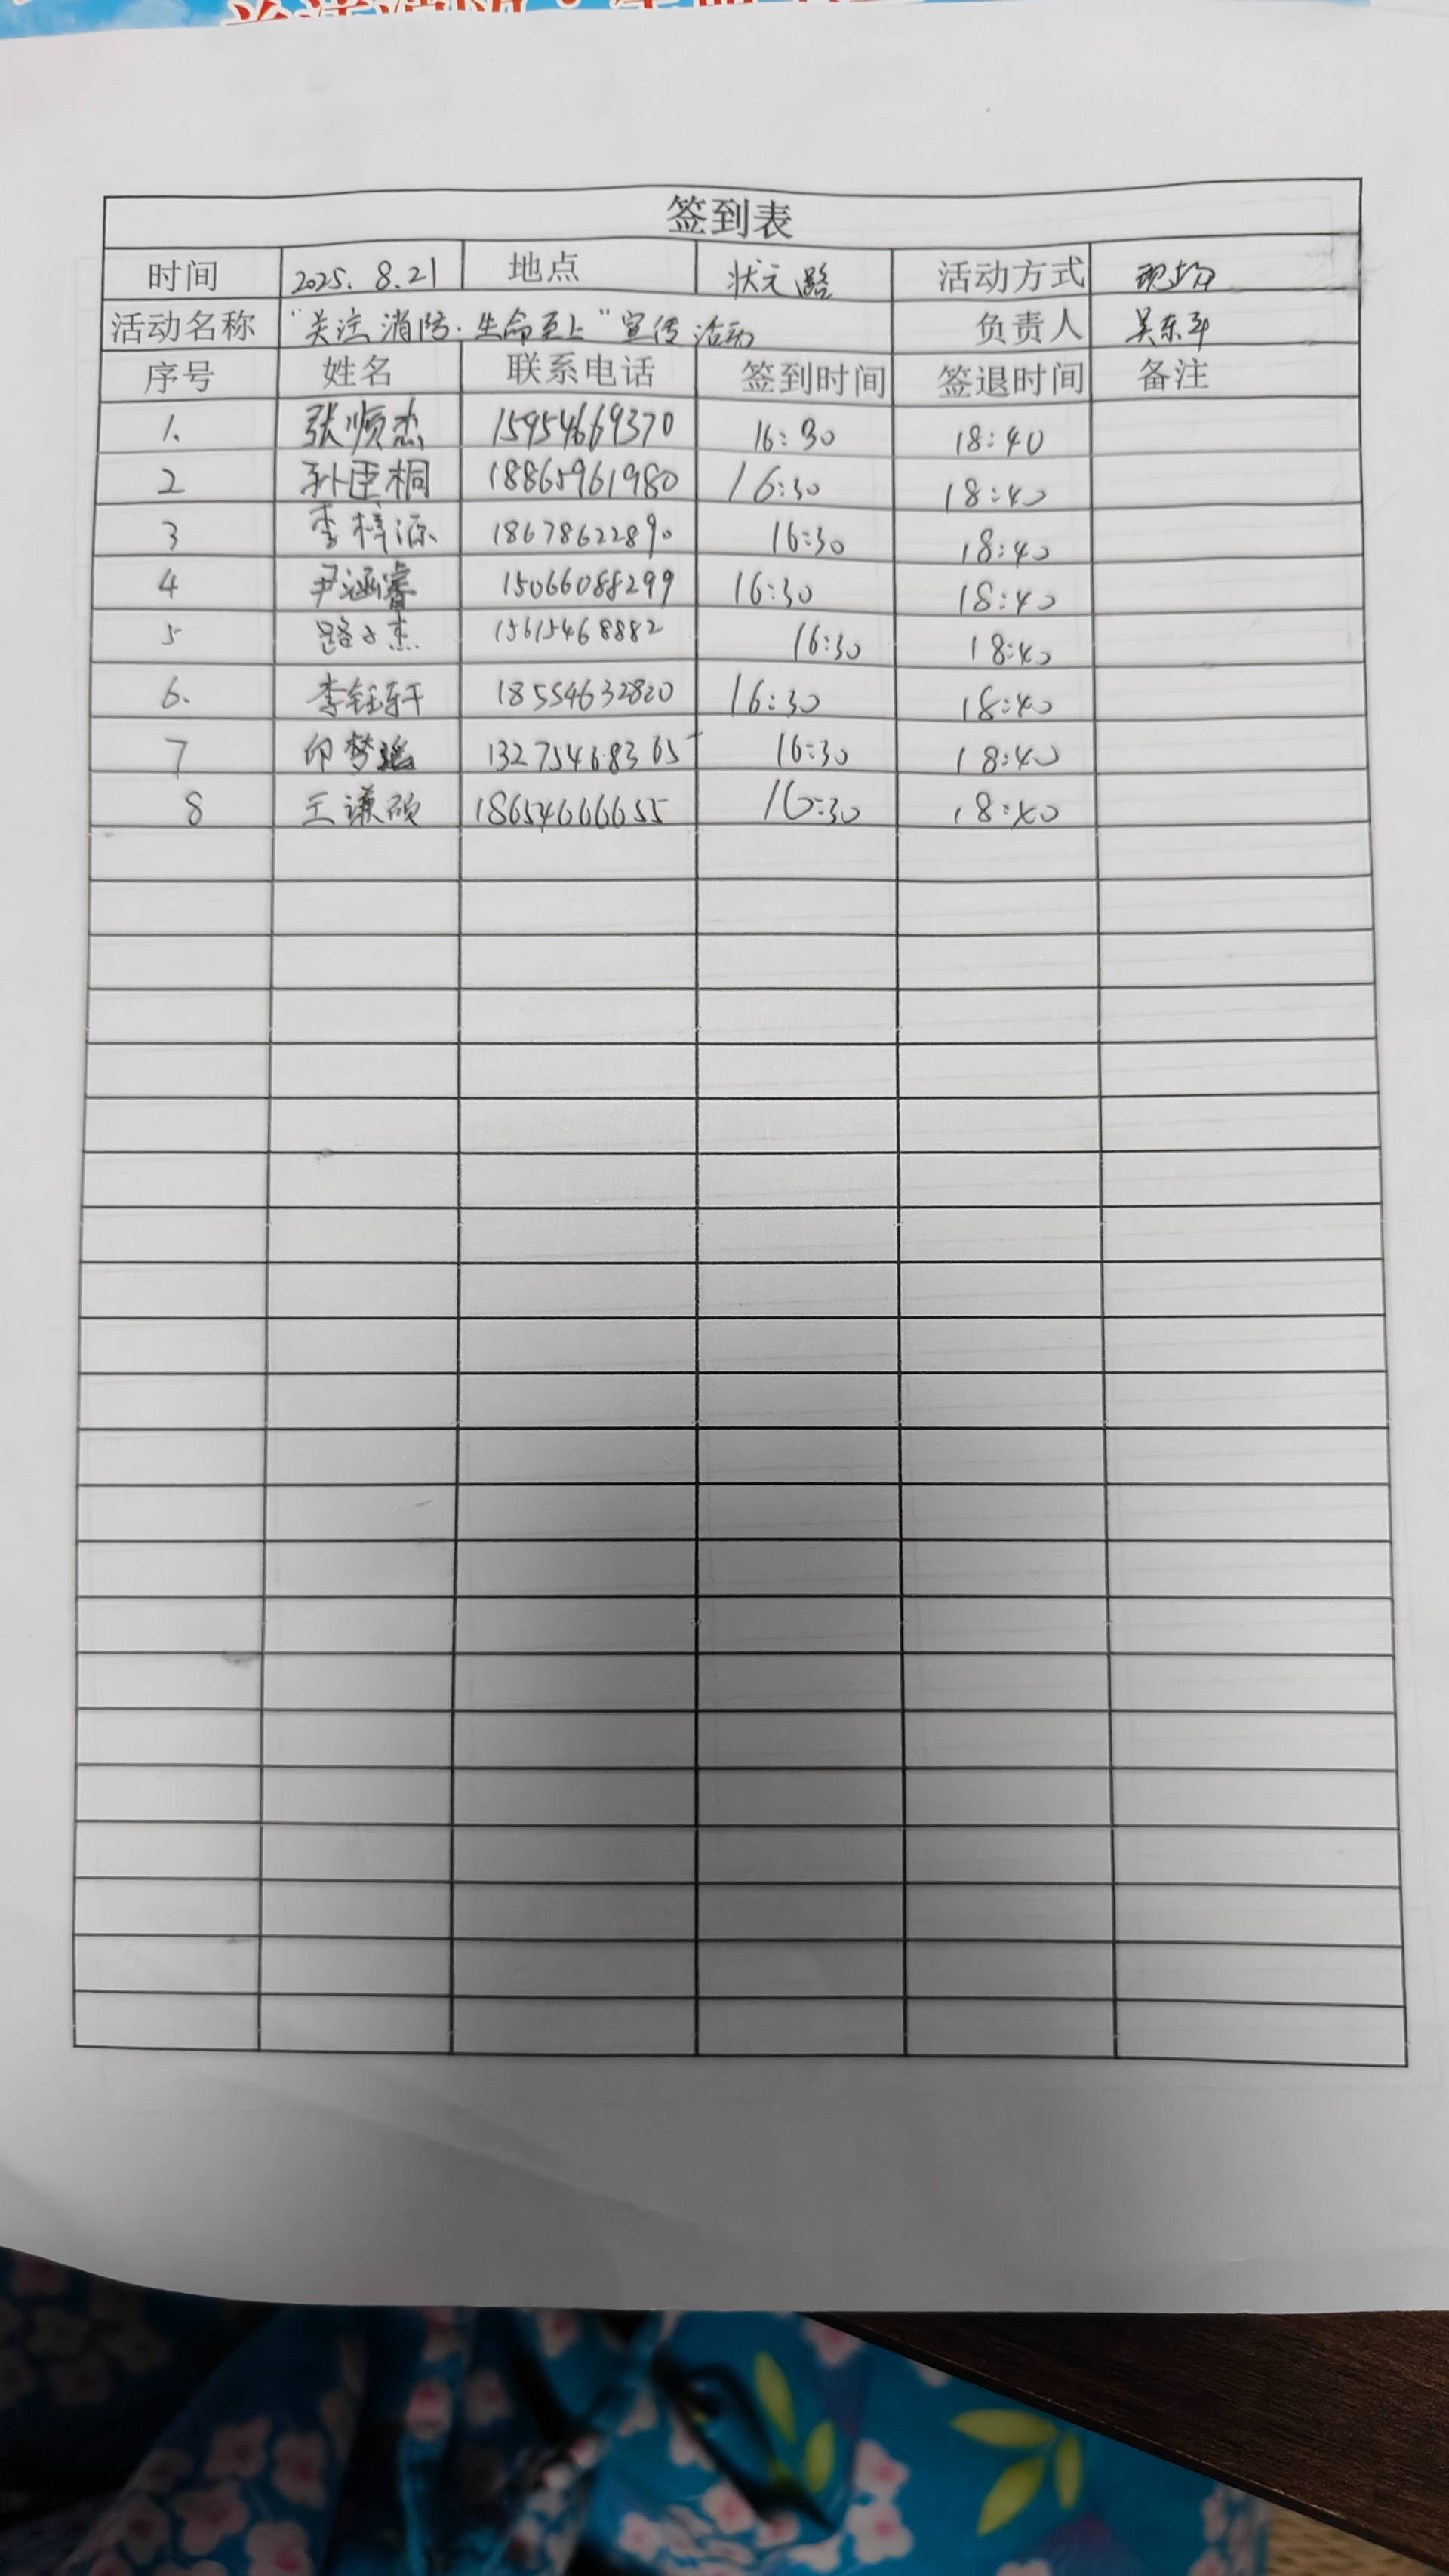 签到表
时间 2025.8.21 地点 状元路 活动方式 现场
活动名称 "关注消防·生命至上"宣传活动 负责人 吴东
序号 姓名 联系电话 签到时间 签退时间 备注
1. 张顺杰 15954669370 16:30 18:40
2 孙臣桐 18865961980 16:30 18:40
3 李梓源 18678622890 16:30 18:40
4 尹涵睿 15066088299 16:30 18:40
5 路 杰 15615468882 16:30 18:40
6. 李钰轩 18554632820 16:30 18:40
7 印梦瑶 13275468365 16:30 18:40
8 王谦硕 18654666655 16:30 18:40